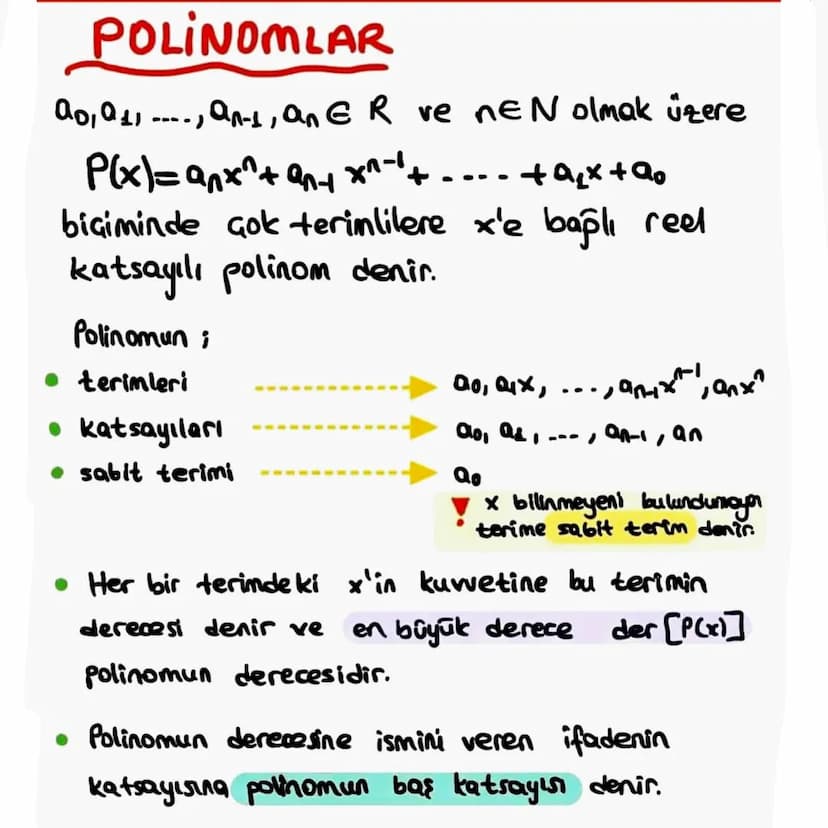 POLİNOMLAR
a₀, a₁, ...., aₙ₋₁, aₙ ∈ R ve n ∈ N olmak üzere
P(x) = aₙxⁿ + aₙ₋₁ xⁿ⁻¹ + ..... + a₁x + a₀
biçiminde çok terimlilere x'e bağlı reel
katsayılı polinom denir.
Polinomun ;
• terimleri → a₀, a₁x, ...., aₙ₋₁xⁿ⁻¹, aₙxⁿ
• katsayıları → a₀, a₁, ..., aₙ₋₁, aₙ
• sabit terimi → a₀
! x bilinmeyeni bulundurmayan
terime sabit terim denir.
• Her bir terimdeki x'in kuvvetine bu terimin
derecesi denir ve en büyük derece der [P(x)]
polinomun derecesidir.
• Polinomun derecesine ismini veren ifadenin
katsayısına polinomun baş katsayısı denir.